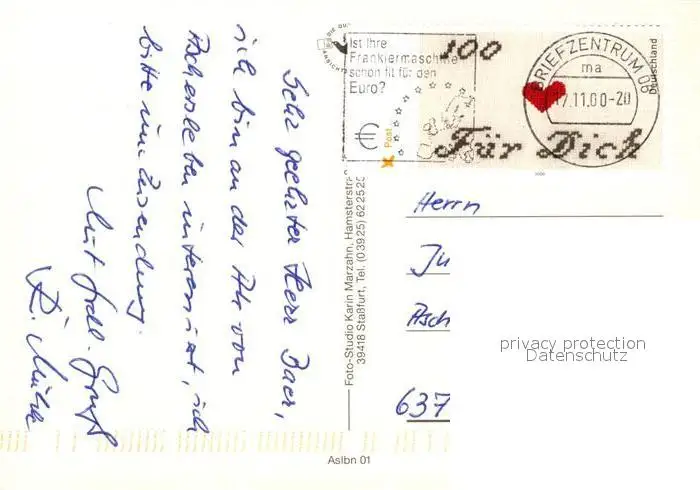 Sehr geehrter Herr Baer,
ich bin an der AK von
Aschersleben interessiert, ich
bitte um Zusendung.
Mit frdl. Gruß
Foto-Studio Karin Marzahn, Hamsterstr
39418 Staßfurt, Tel. (03925) 622525
Ist Ihre
Frankiermaschine
schon fit für den
Euro?
€
100
Für Dich
Post
Deutschland
2000
BRIEFZENTRUM 06
ma
17.11.00-20
Herrn
Ju
Asch
637
privacy protection
Datenschutz
Aslbn 01